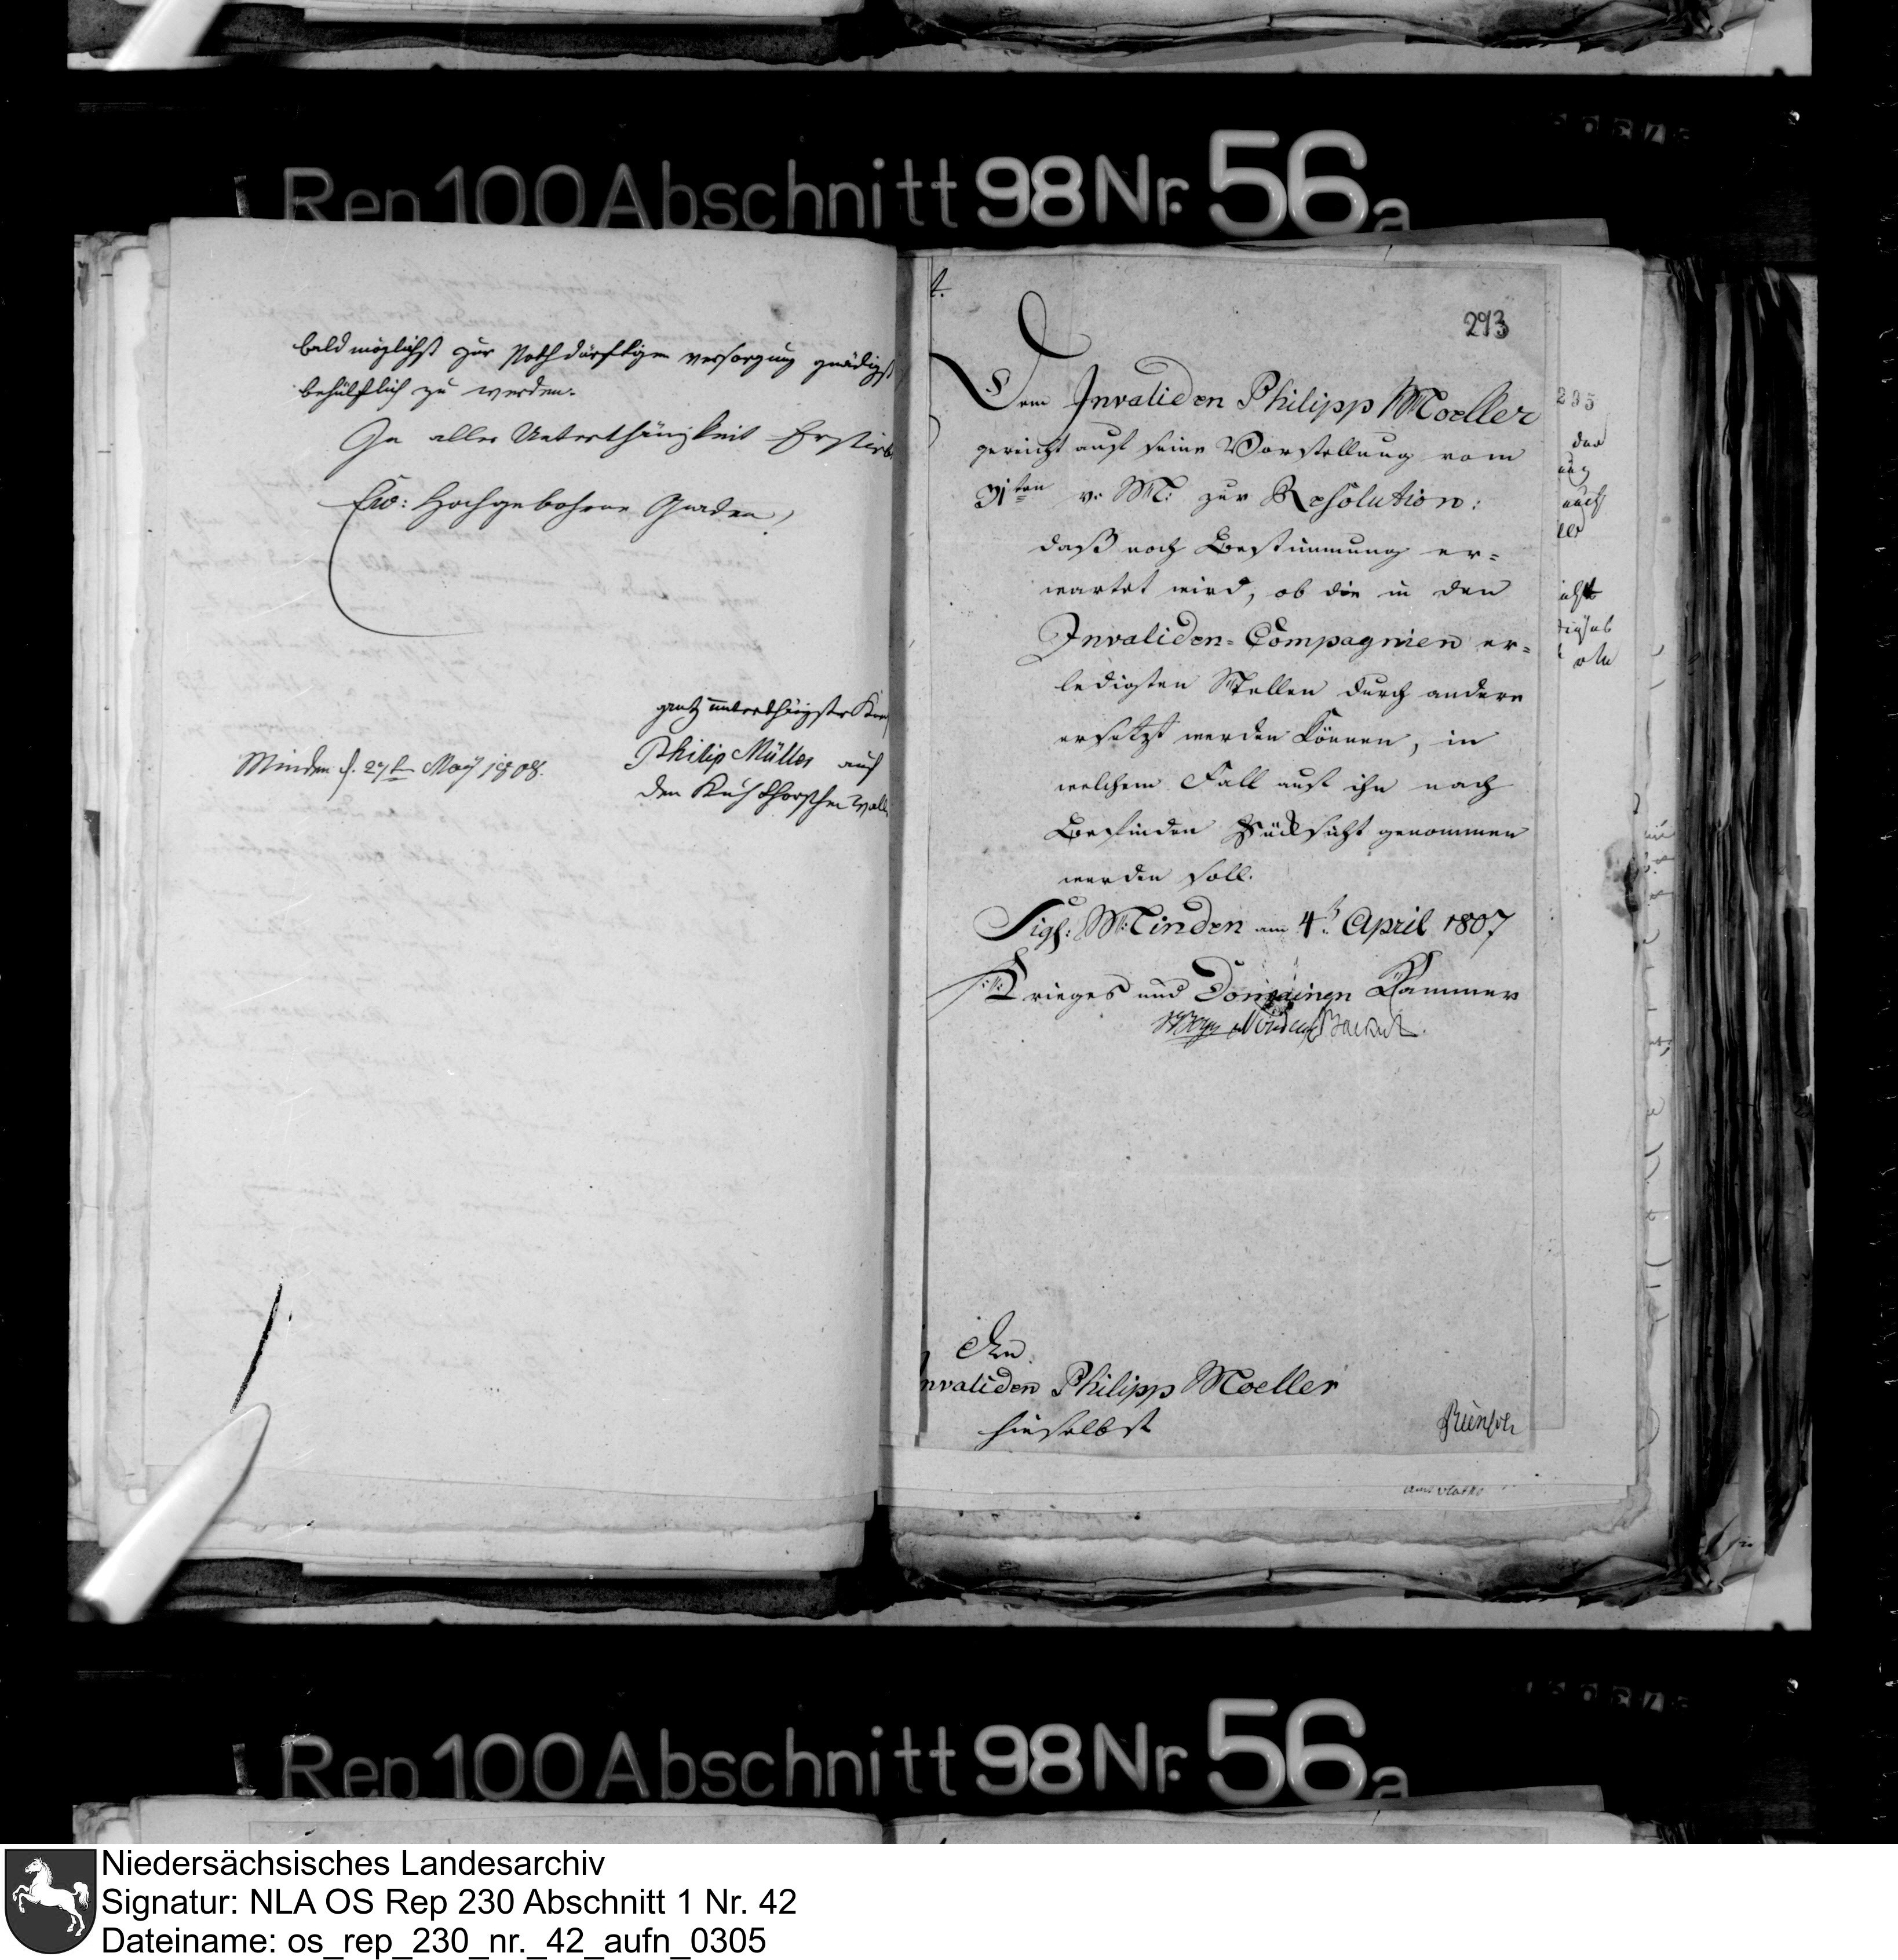 Rep 100 Abschnitt 98 Nr. 56a
bald möglichst zur Nothdürftigen versorgung gnädigst
behülflich zu werden.
In aller Unterthänigkeit Ersterb
Ew: Hochgebohrne Gnaden,
gantz unterthänigster
Philip Müller auf
den Kuhthorschen Wall
Minden d. 27t May 1808.
293
Dem Invaliden Philipp Moeller
gereicht auf seine Vorstellung vom
31ten v. M: zur Resolution:
daß noch Bestimmung er=
wartet wird, ob die in den
Invaliden=Compagnien er=
ledigten Stellen durch andere
ersetzt werden können, in
welchem Fall auf ihn nach
Befinden Rücksicht genommen
werden soll.
Sig: Minden am 4t April 1807
Krieges und Domainen Kammer
An
Invaliden Philipp Moeller
hieselbst
295
Rep 100 Abschnitt 98 Nr. 56a
Niedersächsisches Landesarchiv
Signatur: NLA OS Rep 230 Abschnitt 1 Nr. 42
Dateiname: os_rep_230_nr._42_aufn_0305